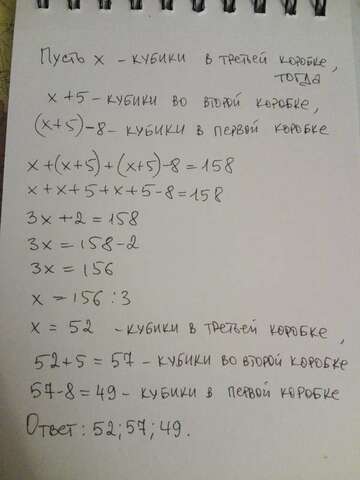 Пусть x - кубики в третьей коробке,
тогда
x+5 - кубики во второй коробке,
(x+5)-8 - кубики в первой коробке
x+(x+5)+(x+5)-8=158
x+x+5+x+5-8=158
3x+2=158
3x=158-2
3x=156
x=156:3
x=52 - кубики в третьей коробке,
52+5=57 - кубики во второй коробке
57-8=49 - кубики в первой коробке
Ответ: 52; 57; 49.